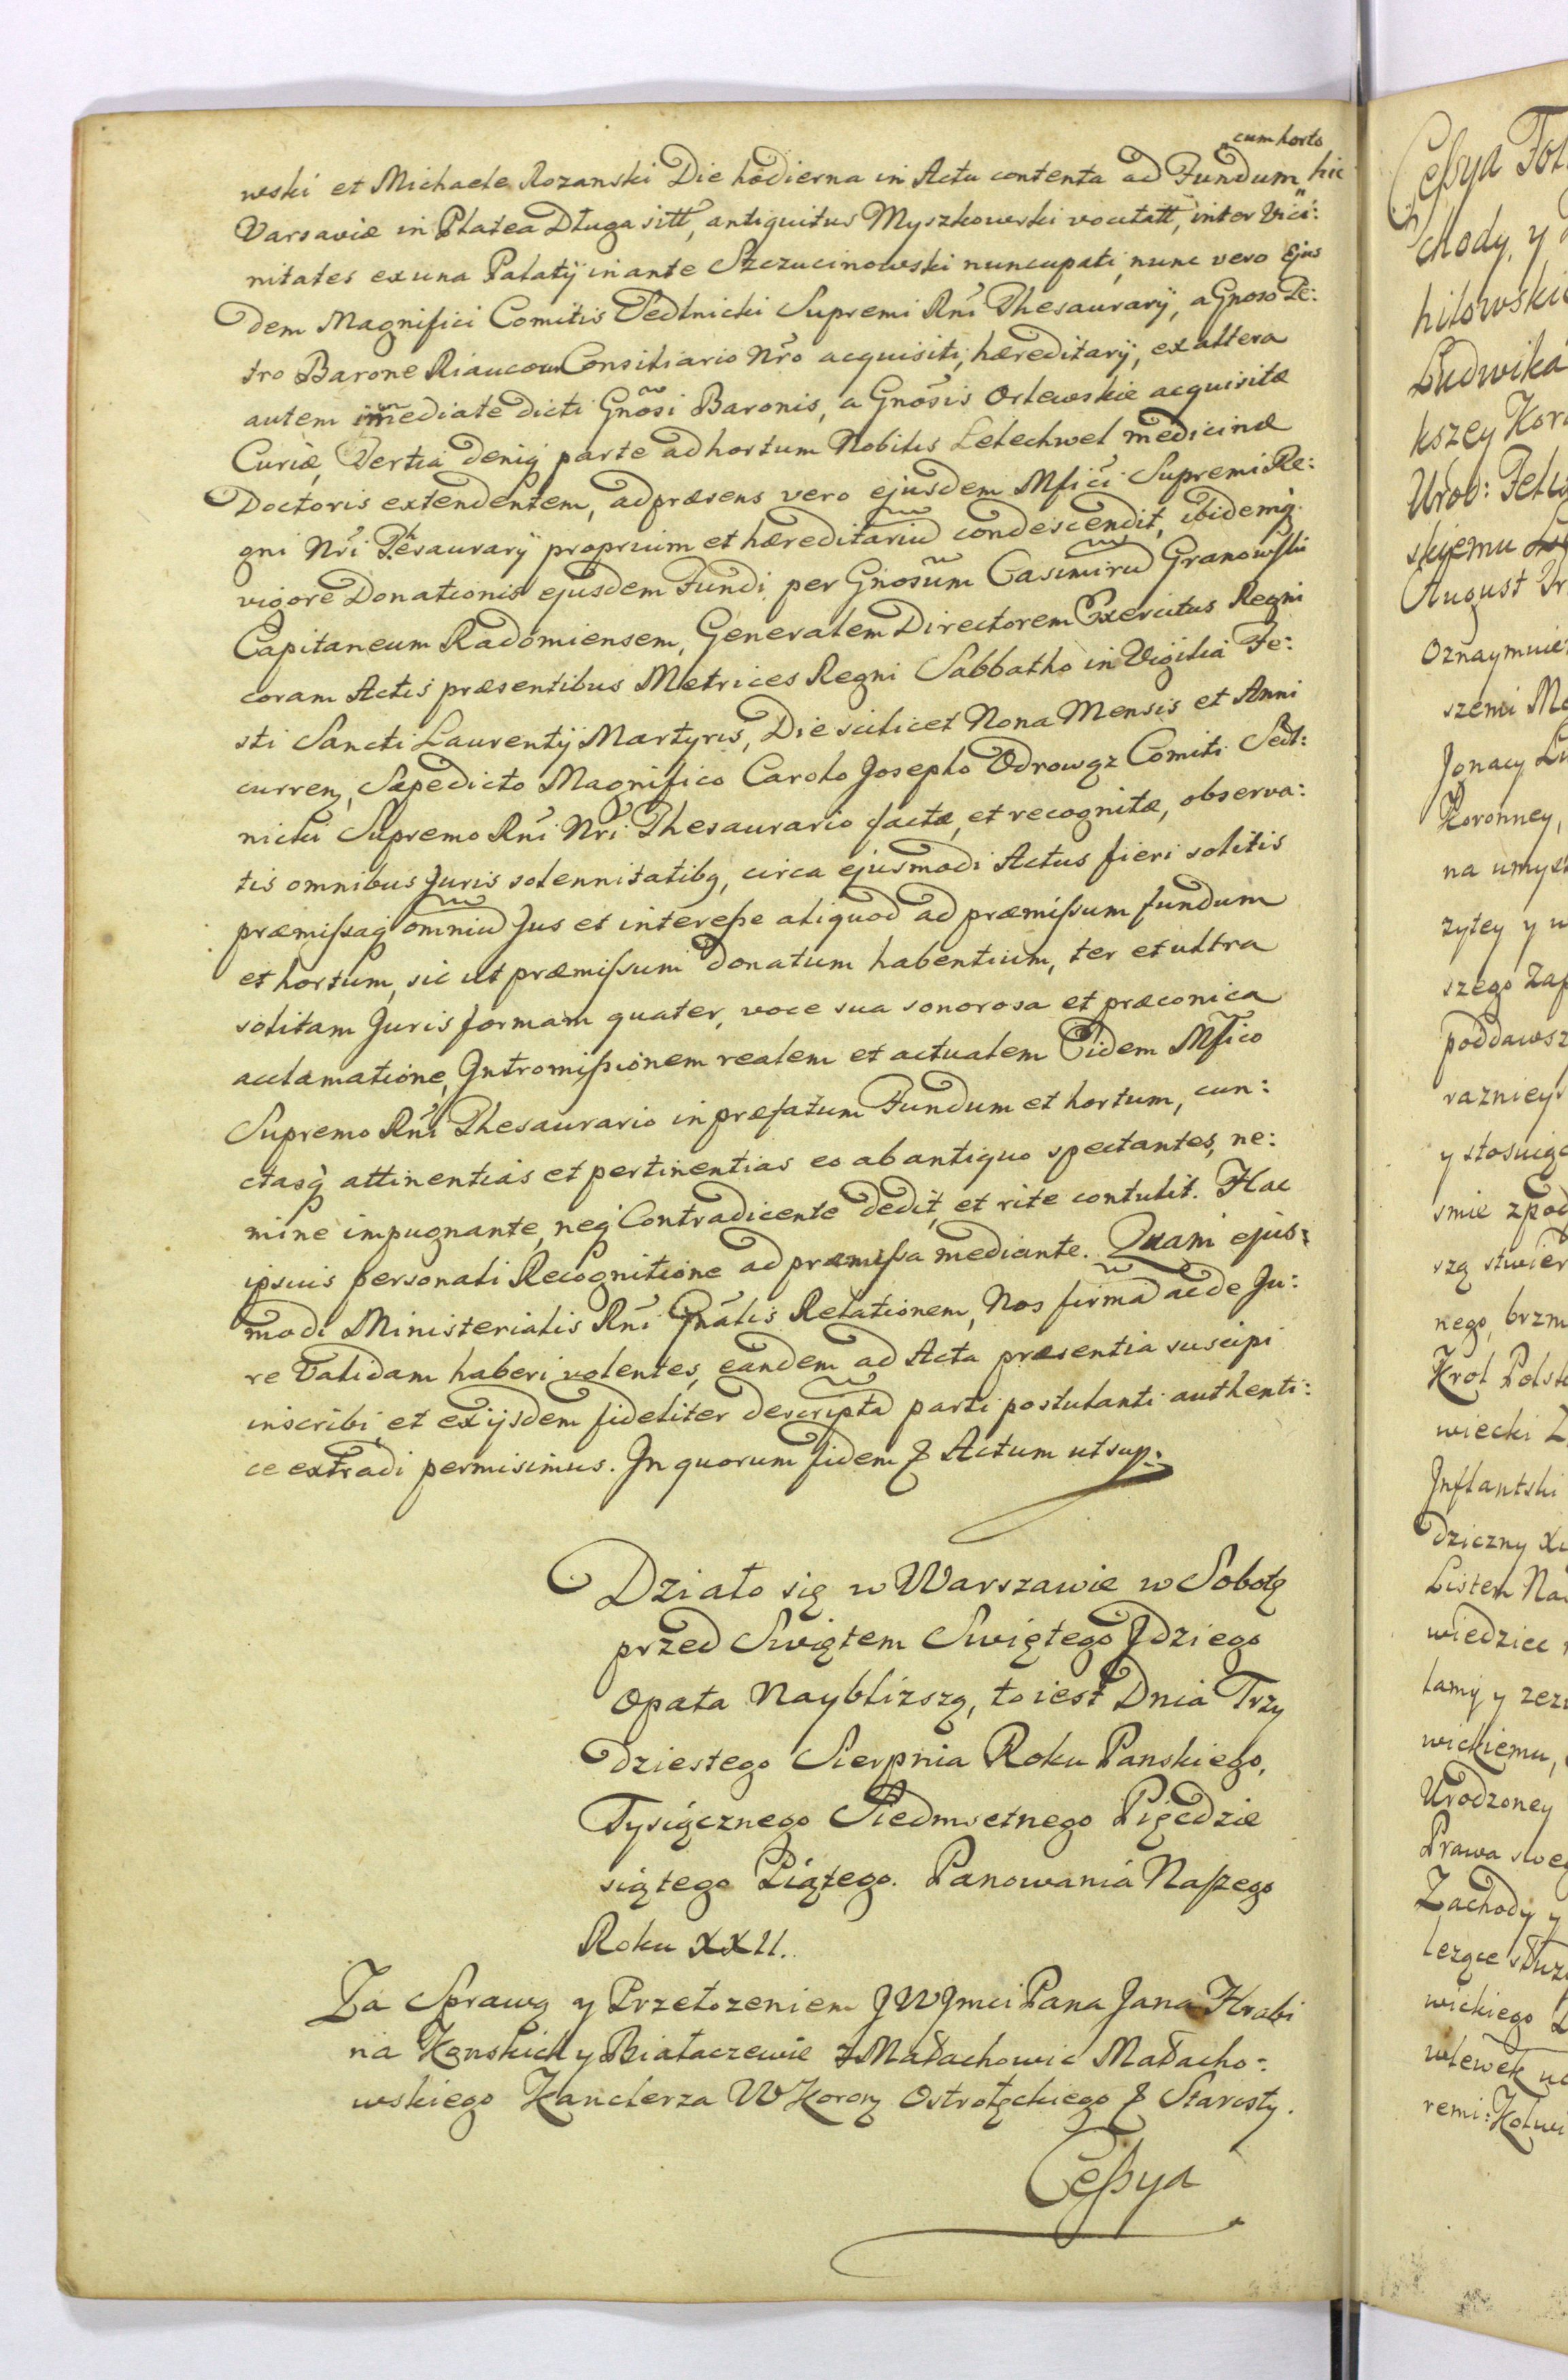 cum horto
wski et Michaele Rozanski Die hodierna in Actu contenta ad Fundum hic
Varsaviæ in Platea Długa sitt, antiquitus Myszkowski vocitatt, inter Vici:
nitates ex una Palatÿ in ante Szczucinowski nuncupati, nunc vero Ejus
dem Magnifici Comitis Sedlnicki Supremi Rñi Thesaurarÿ, a Gnoso Pe:
tro Barone Riaucour Consiliario Nro acquisiti, hæreditarÿ, ex altera
autem im̃ediate dicti Gnõsi Baronis, a Gnõsis Orlewskie acquisitæ
Curiæ, Tertia deniq parte ad hortum Nobilis Lelechwel medicinæ
Doctoris extendentem, ad præsens vero ejusdem Mfici Supremi Re:
gni Nri Thesaurarÿ proprium et hæreditariũ condescendit, ibidemq
vigore Donationis ejusdem Fundi per Gnosum Casimirũ Granowski
Capitaneum Radomiensem, Generalem Directorem Exercitus Regni
coram Actis præsentibus Metrices Regni Sabbatho in Vigilia Fe:
sti Sancti Laurentÿ Martyris, Die scilicet Nona Mensis et Anni
curren, Sæpedicto Magnifico Carolo Josepho Odrowąz Comiti Sedl:
nicki Supremo Rñi Nri Thesaurario factæ, et recognitæ, observa:
tis omnibus Juris solennitatibq, circa ejusmodi Actus fieri solitis
præmißaq omniũ Jus et intereße aliquod ad præmißum fundum
et hortum, sic ut præmißum donatum habentium, ter et ultra
solitam Juris formam quater, voce sua sonorosa et præconica
acclamatione, Intromißionem realem et actualem Eidem Mfico
Supremo Rñi Thesaurario in præfatum Fundum et hortum, cun:
ctasq attinentias et pertinentias eo ab antiquo spectantes, ne:
mine impugnante, neq Contradicente dedit, et rite contulit. Hac
ipsius personali Recognitione ad præmißa mediante. Quam ejus:
modi Ministerialis Rñi Gñalis Relationem, Nos firmã ac de Ju:
re Validam haberi volentes, eandem ad Acta præsentia suscipi
inscribi et ex ijsdem fideliter descriptã parti postulanti authenti:
ce extradi permisimus. In quorum fidem & Actum ut sup:
Działo się w Warszawie w Sobotę
przed Swiętem Swiętego Jdziego
Opata Nayblizszą, to iest Dnia Trzy
dziestego Sierpnia Roku Panskiego,
Tysiącznego Siedmsetnego Pięcdzie
siątego Piątego. Panowania Naßzego
Roku XXII.
Za Sprawą y Przełozeniem JWJmci Pana Jana Hrabi
na Konskich y Białaczewie z Małachowic Małacho:
wskiego Kanclerza W Korony Ostrołęckiego & Starosty.
Ceßya
Ceßya
chody, y
hilowski
Ludwika
kszey Kor
Urod: Felic
skiemu
August
Oznaymuie
szemi
Jgnacy
Koronney,
na umysł
zytey y
szego
poddawsz
razniey
y stosuiąc
smie zpod
szą stwier
nego, brzm
Krol Polsk
wiecki
Jnflantski
dziczny
Listem Na
wiedziec
lamy y zez
wickiemu,
Urodzoney
Prawa swe
Zachody y
lezące słuz
wickiego
wlewek na
remi: Kolwi